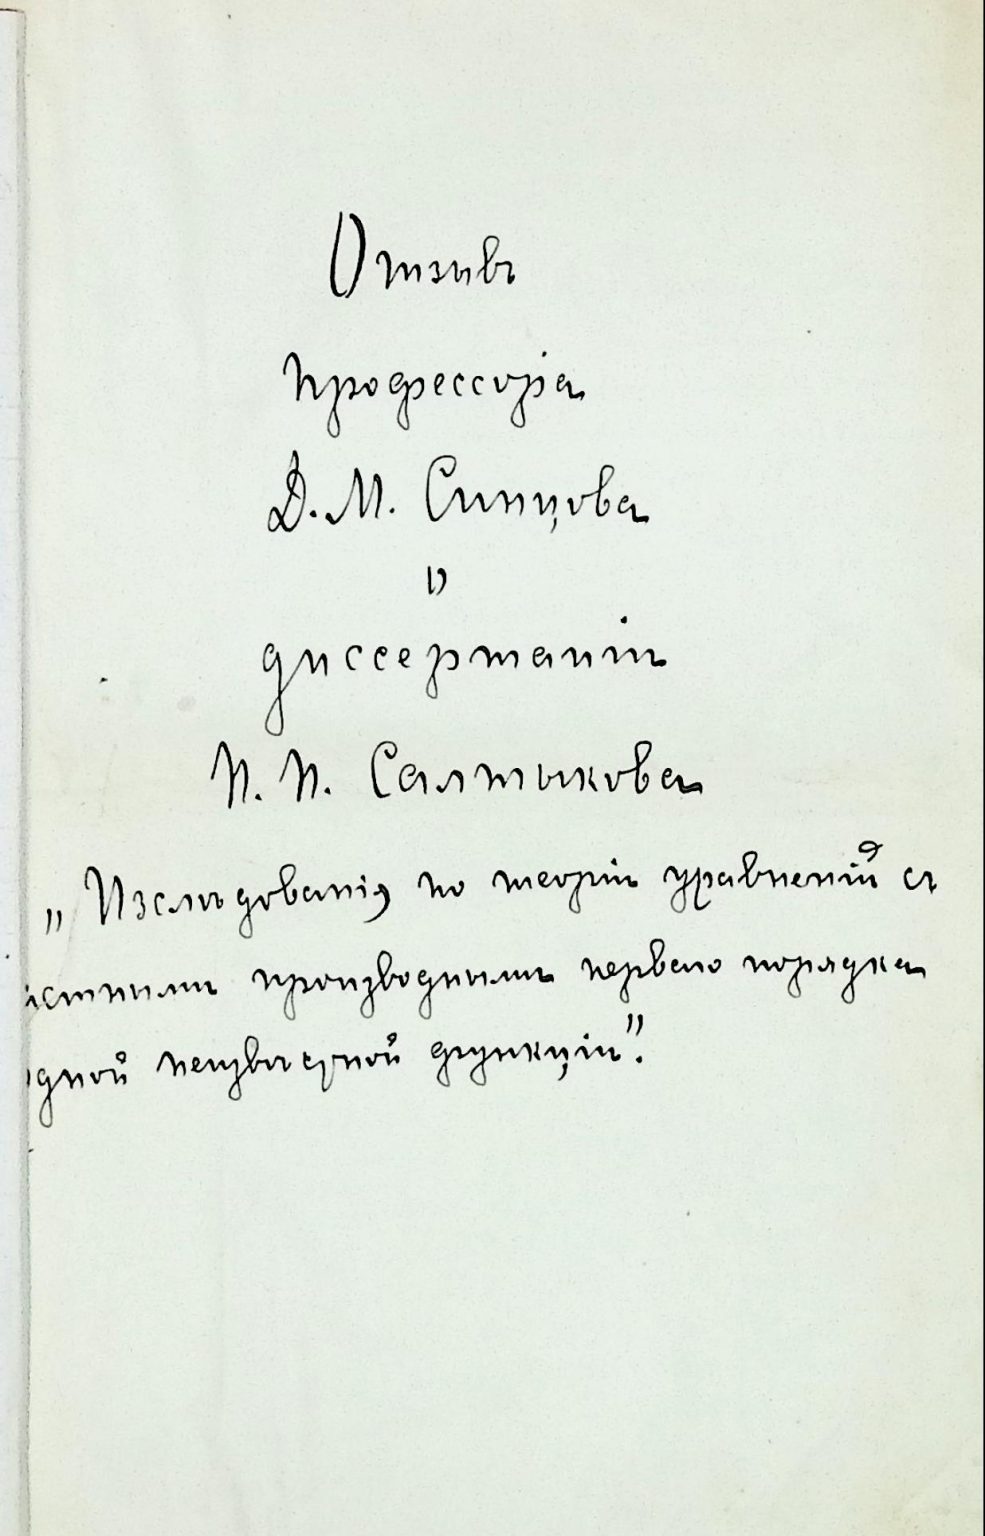 Отзывъ
профессора
Д. М. Синцова
о
диссертаціи
Н. Н. Салтыкова
„Изслѣдованія по теоріи уравненій съ
частными производными перваго порядка
одной неизвѣстной функціи”.